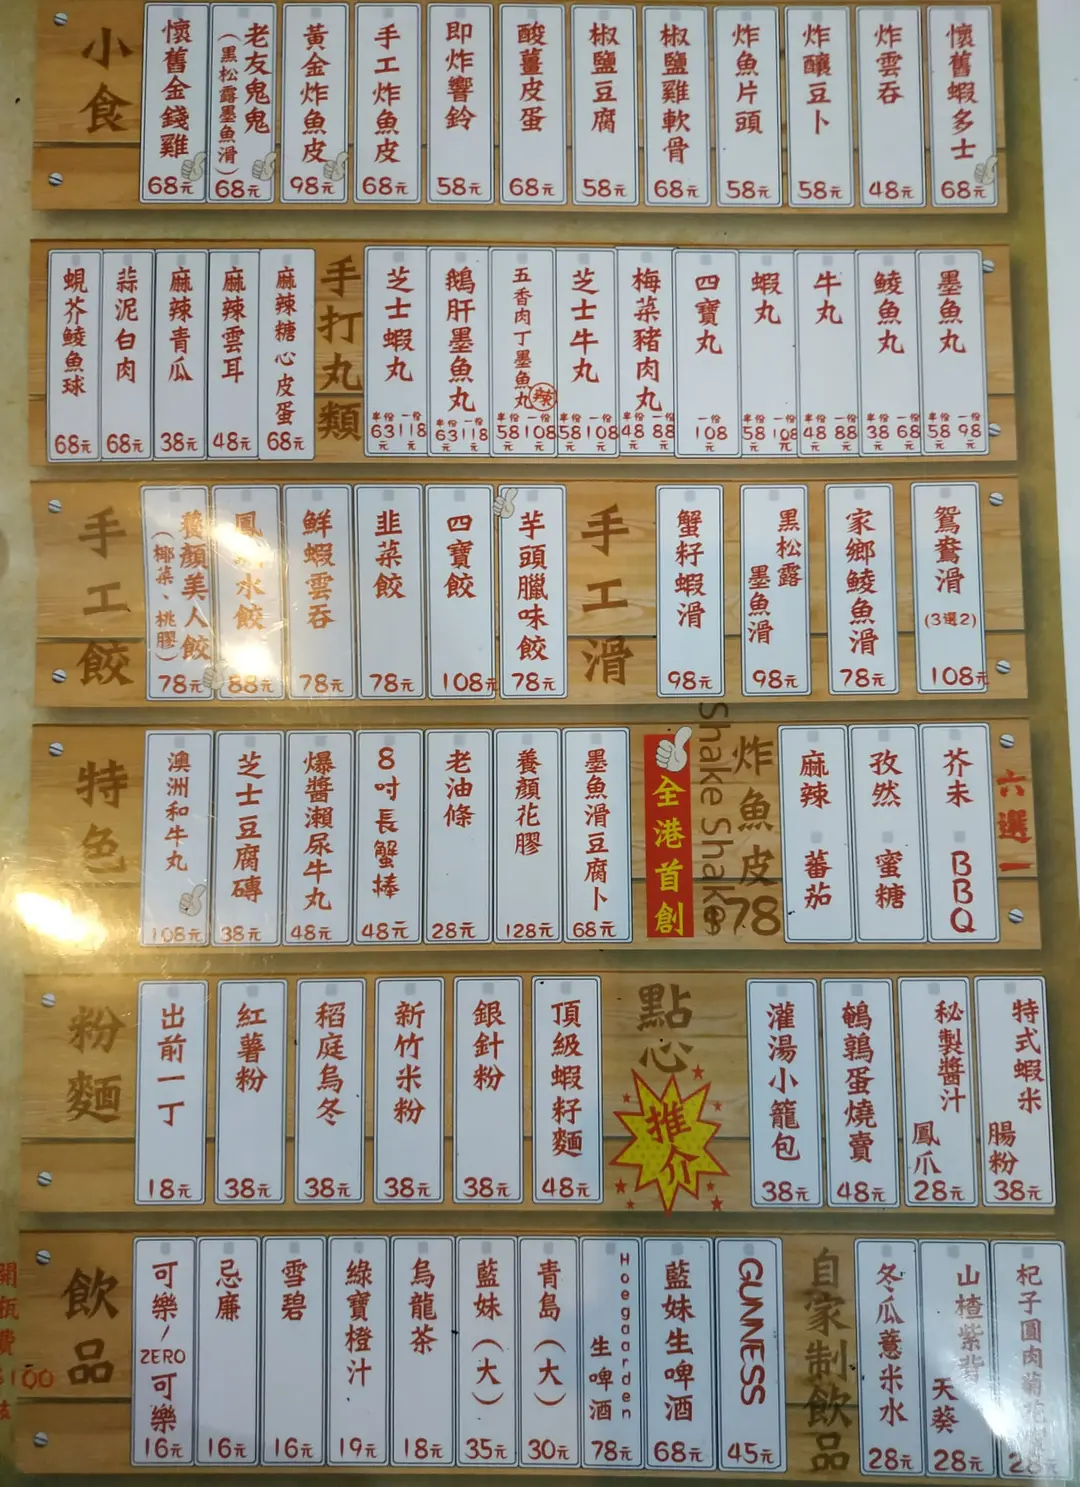 小食
懷舊金錢雞 68元
老友鬼鬼(黑松露墨魚滑) 68元
黃金炸魚皮 98元
手工炸魚皮 68元
即炸響鈴 58元
酸薑皮蛋 68元
椒鹽豆腐 58元
椒鹽雞軟骨 68元
炸魚片頭 58元
炸釀豆卜 58元
炸雲吞 48元
懷舊蝦多士 68元
蜆芥鯪魚球 68元
蒜泥白肉 68元
麻辣青瓜 38元
麻辣雲耳 48元
麻辣糖心皮蛋 68元
手打丸類
芝士蝦丸 半份63元 一份118元
鵝肝墨魚丸 半份63元 一份118元
五香肉丁墨魚丸 辣 半份58元 一份108元
芝士牛丸 半份58元 一份108元
梅菜豬肉丸 半份48元 一份88元
四寶丸 一份108元
蝦丸 半份58元 一份108元
牛丸 半份48元 一份88元
鯪魚丸 半份38元 一份68元
墨魚丸 半份58元 一份98元
手工餃
養顏美人餃(椰菜、桃膠) 78元
鳳水餃 88元
鮮蝦雲吞 78元
韭菜餃 78元
四寶餃 108元
芋頭臘味餃 78元
手工滑
蟹籽蝦滑 98元
黑松露墨魚滑 98元
家鄉鯪魚滑 78元
鴛鴦滑(3選2) 108元
特色
澳洲和牛丸 108元
芝士豆腐磚 38元
爆醬瀨尿牛丸 48元
8吋長蟹棒 48元
老油條 28元
養顏花膠 128元
墨魚滑豆腐卜 68元
全港首創
Shake Shake
炸魚皮 $78
麻辣 蕃茄
孜然 蜜糖
芥末 BBQ
六選一
粉麵
出前一丁 18元
紅薯粉 38元
稻庭烏冬 38元
新竹米粉 38元
銀針粉 38元
頂級蝦籽麵 48元
點心
推介
灌湯小籠包 38元
鵪鶉蛋燒賣 48元
秘製醬汁鳳爪 28元
特式蝦米腸粉 38元
開瓶費
$100
飲品
可樂/ZERO可樂 16元
忌廉 16元
雪碧 16元
綠寶橙汁 19元
烏龍茶 18元
藍妹(大) 35元
青島(大) 30元
Hoegaarden生啤酒 78元
藍妹生啤酒 68元
GUINNESS 45元
自家制飲品
冬瓜薏米水 28元
山楂紫背天葵 28元
杞子圓肉菊花 28元